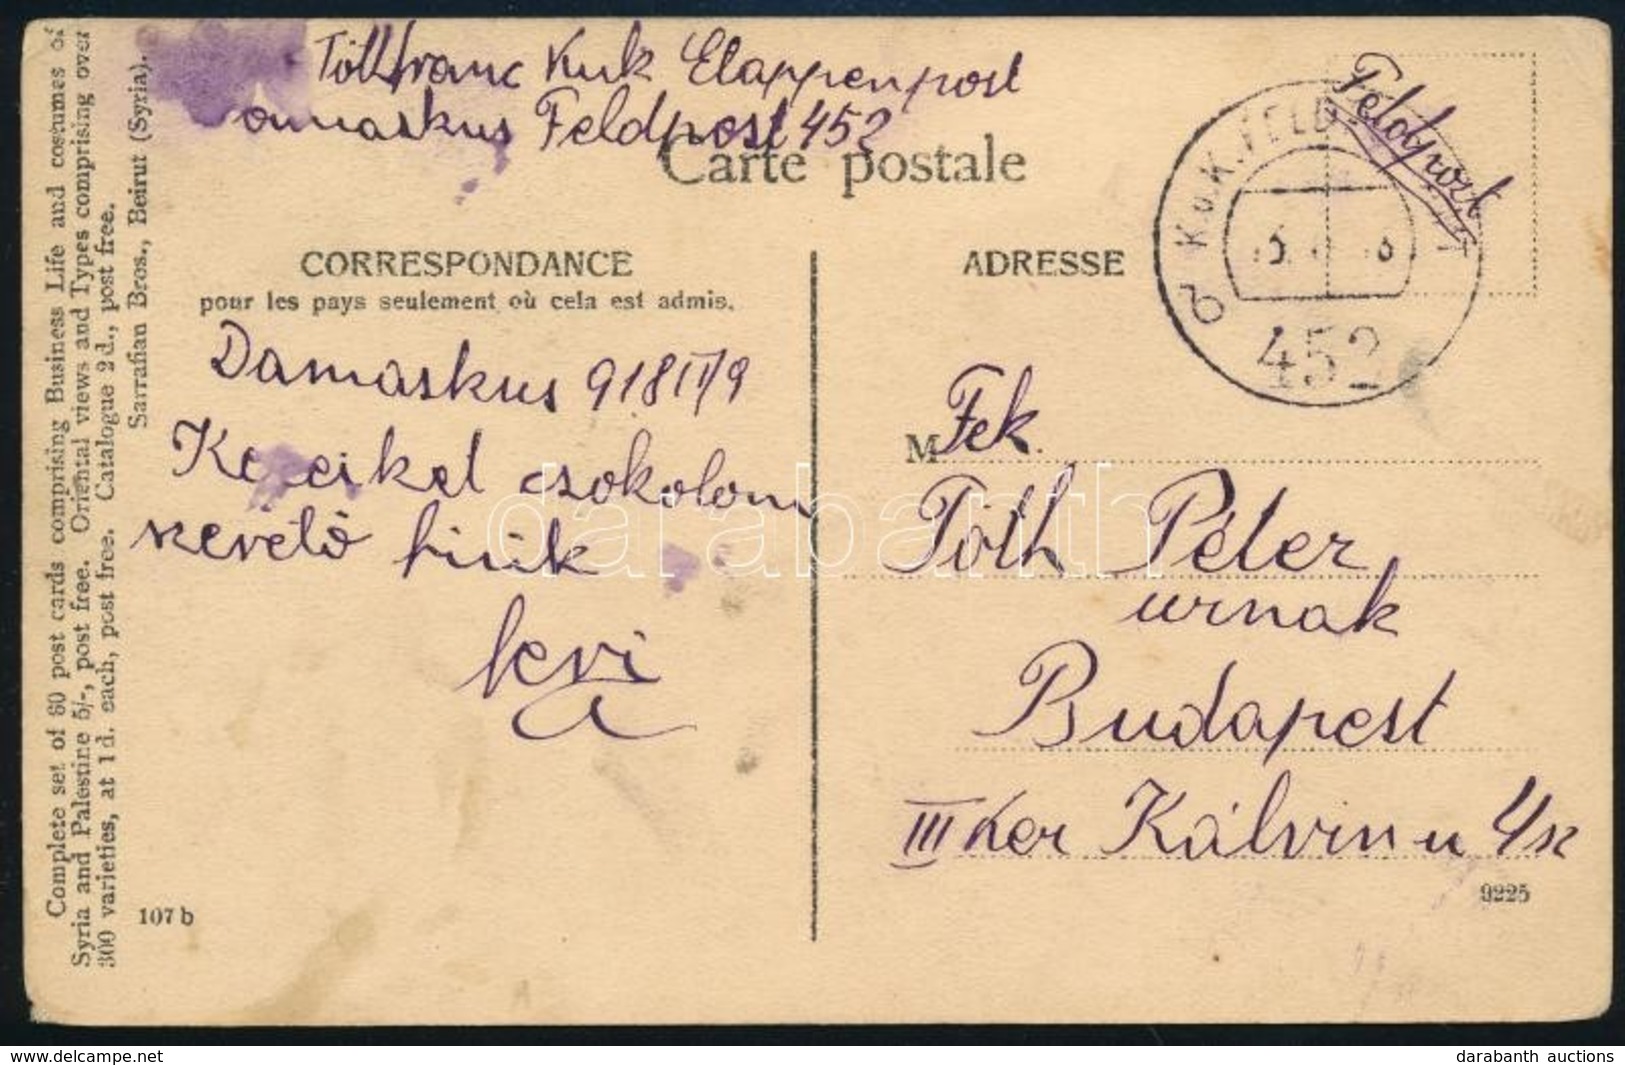 Tóth Franc Kuk Etappenpost
Damaskus Feldpost 452
Feldpost
Carte postale
K.u.K. FELDPOST
452
CORRESPONDANCE
pour les pays seulement où cela est admis.
ADRESSE
Damaskus 918 II/9
csokolom
szerető fiúk
Fek.
M
Tóth Péter
urnak
Budapest
III Ker Kálvin u 4 sz
9225
107 b
Complete set of 60 post cards comprising Business Life and costumes of
Syria and Palestine 5/-, post free. Oriental views and Types comprising over
300 varieties, at 1 d. each, post free. Catalogue 2 d., post free.
Sarrafian Bros., Beirut (Syria).
darabanth
www.darabanth.com
darabanth auctions